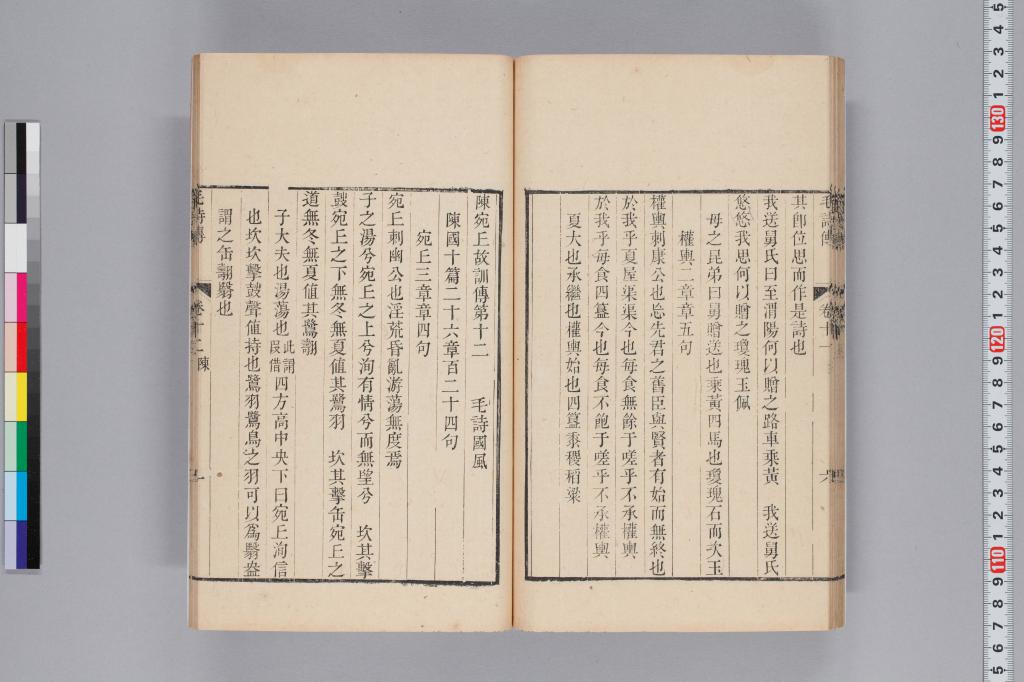 其卽位思而作是詩也
我送舅氏曰至渭陽何以贈之路車乘黃　我送舅氏
悠悠我思何以贈之瓊瑰玉佩
母之昆弟曰舅贈送也乘黃四馬也瓊瑰石而次玉
權輿二章章五句
權輿刺康公也忘先君之舊臣與賢者有始而無終也
於我乎夏屋渠渠今也每食無餘于嗟乎不承權輿
於我乎每食四簋今也每食不飽于嗟乎不承權輿
夏大也承繼也權輿始也四簋黍稷稻粱
毛詩傳　卷十一　六
陳宛丘故訓傳第十二　毛詩國風
陳國十篇二十六章百二十四句
宛丘三章章四句
宛丘刺幽公也淫荒昏亂游蕩無度焉
子之湯兮宛丘之上兮洵有情兮而無望兮　坎其擊
鼓宛丘之下無冬無夏値其鷺羽　坎其擊缶宛丘之
道無冬無夏値其鷺翿
子大夫也湯蕩也此謂叚借四方高中央下曰宛丘洵信
也坎坎擊鼓聲値持也鷺羽鷺鳥之羽可以爲翳盎
謂之缶翿翳也
毛詩傳　卷十二　陳　一
5
4
3
2
1
130
9
8
7
6
5
4
3
2
1
120
9
8
7
6
5
4
3
2
1
110
9
8
7
6
5